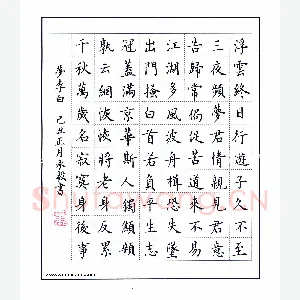 浮雲終日行遊子久不至
三夜頻夢君情親見君意
告歸常局促苦道來不易
江湖多風波舟楫恐失墜
出門搔白首若負平生志
冠蓋滿京華斯人獨顦顇
孰云網恢恢將老身反累
千秋萬歲名寂寞身後事
夢李白 己丑正月承毅書
Shufawang.CN